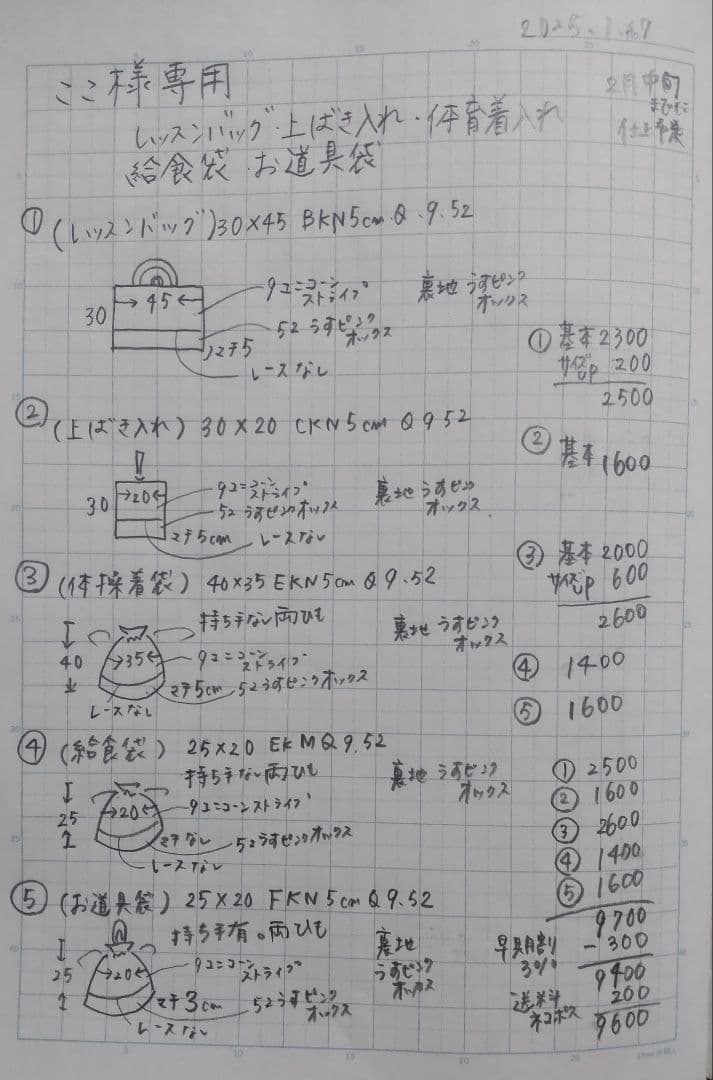 2025.1.
2月中旬
までに
仕上
ここ様専用
レッスンバッグ・上ばき入れ・体育着入れ
給食袋・お道具袋
① (レッスンバッグ) 30×45 BKN5cm Q.9.52
30
→45←
9ユニコーン
ストライプ
52 うすピンク
オックス
マチ5
レースなし
裏地 うすピンク
オックス
① 基本2300
サイズup 200
2500
② (上ばき入れ) 30×20 CKN5cm Q952
30
→20←
9ユニコーン
ストライプ
52うすピンクオックス
マチ5cm
レースなし
裏地 うすピンク
オックス
② 基本1600
③ (体操着袋) 40×35 EKN5cm Q9.52
持ち手なし両ひも
40
→35←
9ユニコーン
ストライプ
マチ5cm
52うすピンクオックス
レースなし
裏地 うすピンク
オックス
③ 基本2000
サイズup 600
2600
④ 1400
⑤ 1600
④ (給食袋) 25×20 EKMQ9.52
持ち手なし両ひも
25
→20←
9ユニコーンストライプ
マチなし
52うすピンクオックス
レースなし
裏地 うすピンク
オックス
⑤ (お道具袋) 25×20 FKN5cm Q9.52
持ち手有。両ひも
25
→20←
9ユニコーン
ストライプ
マチ3cm
52うすピンク
オックス
レースなし
裏地
うすピンク
オックス
① 2500
② 1600
③ 2600
④ 1400
⑤ 1600
9700
早期割
3%
-300
9400
送料
ネコポス
200
9600